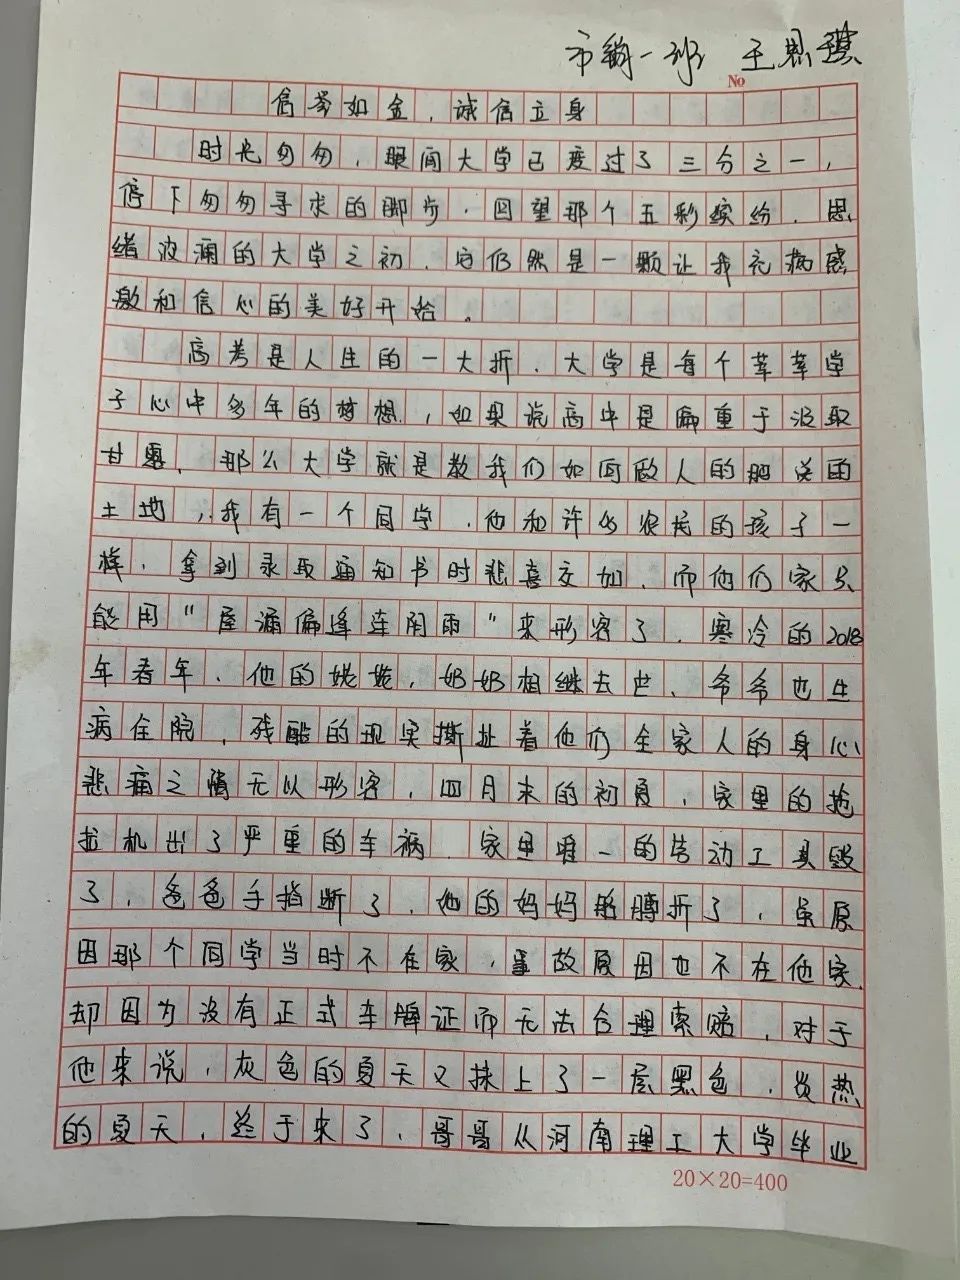 市销一班 王思琪
No
信誉如金，诚信立身
时光匆匆，眼间大学已度过了三分之一，
停下匆匆寻求的脚步，回望那个五彩缤纷，思
绪波澜的大学之初，它仍然是一颗让我充满感
激和信心的美好开始。
高考是人生的一大折，大学是每个莘莘学
子心中多年的梦想，如果说高中是偏重于汲取
甘露，那么大学就是教我们如何做人的肥沃的
土地，我有一个同学，他和许多农民的孩子一
样，拿到录取通知书时悲喜交加，而他们家只
能用"屋漏偏逢连阴雨"来形容了，寒冷的2018
年春年，他的姥姥，奶奶相继去世，爷爷也生
病住院，残酷的现实撕扯着他们全家人的身心
悲痛之情无以形容，四月末的初夏，家里的拖
拉机出了严重的车祸，家里唯一的劳动工具毁
了，爸爸手指断了，他的妈妈胳膊折了，虽原
因那个同学当时不在家，事故原因也不在他家，
却因为没有正式车牌证而无法合理索赔，对于
他来说，灰色的夏天又抹上了一层黑色，炎热
的夏天，终于来了，哥哥从河南理工大学毕业
20×20=400